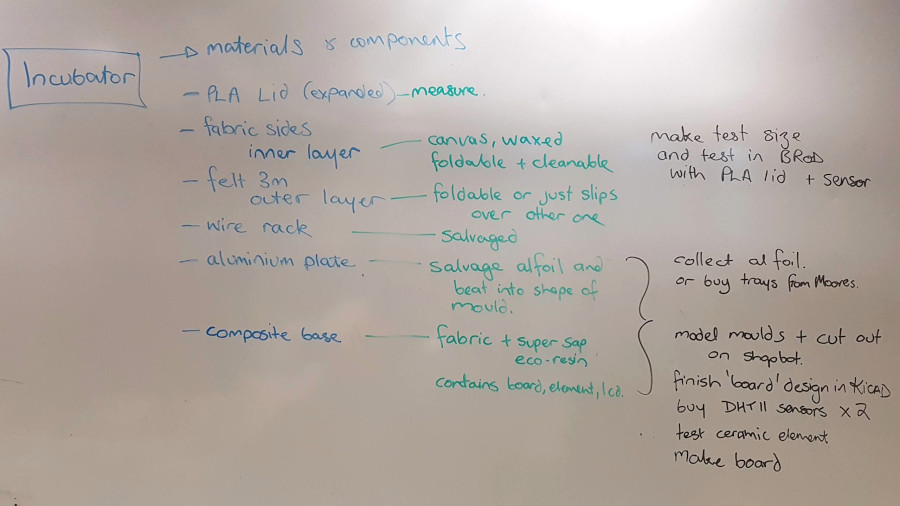 Incubator
→ materials & components
- PLA Lid (expanded) - measure.
- fabric sides
inner layer — canvas, waxed
foldable + cleanable
- felt 3m
outer layer — foldable or just slips
over other one
- wire rack — salvaged
- aluminium plate. — salvage alfoil and
beat into shape of
mould.
- composite base — fabric + super sap
eco-resin
contains board, element, lcd.
make test size
and test in BROD
with PLA lid + sensor
collect al foil.
or buy trays from Moores.
model moulds + cut out
on shopbot.
finish 'board' design in KiCAD
buy DHT11 sensors x 2
test ceramic element
Make board